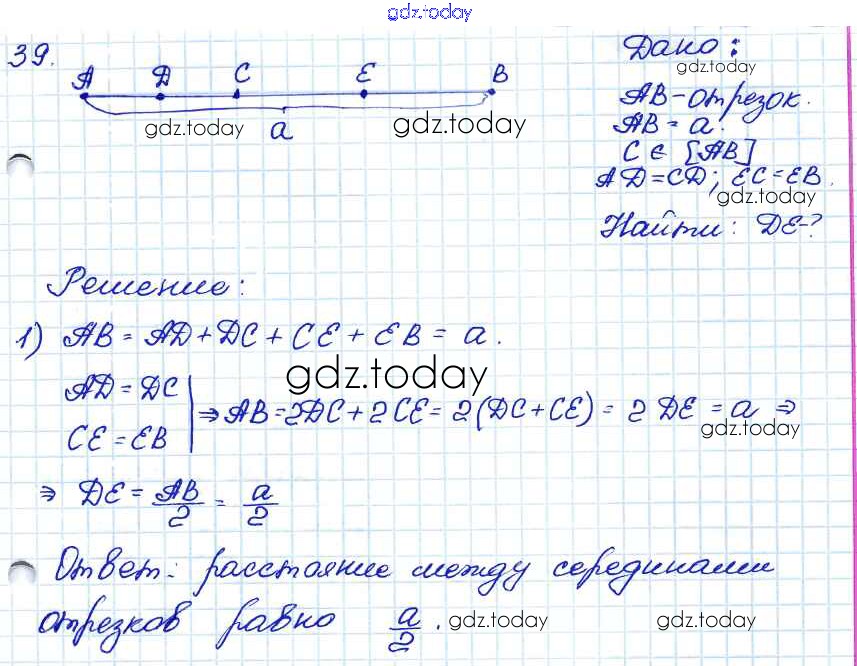 gdz.today
39.
A D C E B
a
gdz.today
gdz.today
Дано:
gdz.today
AB - отрезок.
AB = a.
C ∈ [AB]
AD = CD; EC = EB.
gdz.today
Найти: DE - ?
Решение:
1) AB = AD + DC + CE + EB = a.
gdz.today
AD = DC
CE = EB
⇒ AB = 2DC + 2CE = 2(DC + CE) = 2 DE = a ⇒
gdz.today
⇒ DE = AB/2 = a/2
Ответ: расстояние между серединами
отрезков равно a/2.
gdz.today
gdz.today